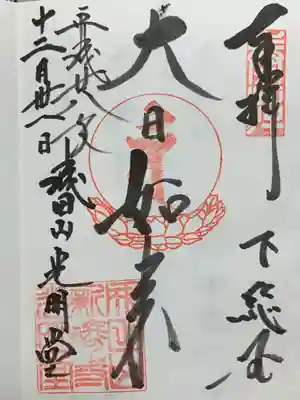 奉拝
下総国
大日如来
平成廿八年
十二月廿八日
成田山光明堂
成田山
新勝寺
光明堂